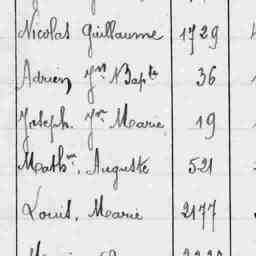 Nicolas Guillaume 1729
Adrien Jn Bapte 36
Joseph Jn Marie 19
Mathin, Auguste 521
Louis, Marie 2177